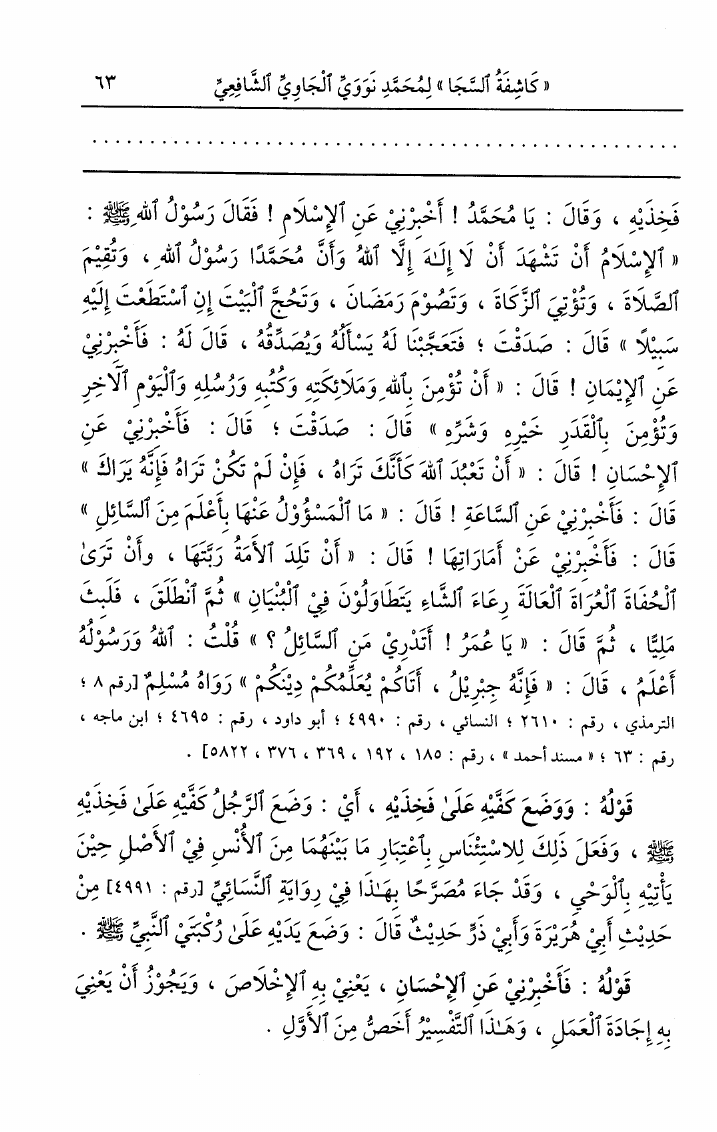 « كَاشِفَةُ ٱلسَّجَا » لِمُحَمَّدِ نَوَوِيِّ ٱلْجَاوِيِّ ٱلشَّافِعِيِّ ٦٣
فَخِذَيْهِ ، وَقَالَ : يَا مُحَمَّدُ ! أَخْبِرْنِيْ عَنِ ٱلإِسْلَامِ ! فَقَالَ رَسُوْلُ ٱللهِ ﷺ :
« ٱلإِسْلَامُ أَنْ تَشْهَدَ أَنْ لَا إِلَـٰهَ إِلَّا ٱللهُ وَأَنَّ مُحَمَّدًا رَسُوْلُ ٱللهِ ، وَتُقِيْمَ
ٱلصَّلَاةَ ، وَتُؤْتِيَ ٱلزَّكَاةَ ، وَتَصُوْمَ رَمَضَانَ ، وَتَحُجَّ ٱلْبَيْتَ إِنِ ٱسْتَطَعْتَ إِلَيْهِ
سَبِيْلًا » قَالَ : صَدَقْتَ ؛ فَتَعَجَّبْنَا لَهُ يَسْأَلُهُ وَيُصَدِّقُهُ ، قَالَ لَهُ : فَأَخْبِرْنِيْ
عَنِ ٱلإِيْمَانِ ! قَالَ : « أَنْ تُؤْمِنَ بِٱللهِ وَمَلَائِكَتِهِ وَكُتُبِهِ وَرُسُلِهِ وَٱلْيَوْمِ ٱلآخِرِ
وَتُؤْمِنَ بِٱلْقَدَرِ خَيْرِهِ وَشَرِّهِ » قَالَ : صَدَقْتَ ؛ قَالَ : فَأَخْبِرْنِيْ عَنِ
ٱلإِحْسَانِ ! قَالَ : « أَنْ تَعْبُدَ ٱللهَ كَأَنَّكَ تَرَاهُ ، فَإِنْ لَمْ تَكُنْ تَرَاهُ فَإِنَّهُ يَرَاكَ »
قَالَ : فَأَخْبِرْنِيْ عَنِ ٱلسَّاعَةِ ! قَالَ : « مَا ٱلْمَسْؤُوْلُ عَنْهَا بِأَعْلَمَ مِنَ ٱلسَّائِلِ »
قَالَ : فَأَخْبِرْنِيْ عَنْ أَمَارَاتِهَا ! قَالَ : « أَنْ تَلِدَ ٱلأَمَةُ رَبَّتَهَا ، وأَنْ تَرَىٰ
ٱلْحُفَاةَ ٱلْعُرَاةَ ٱلْعَالَةَ رِعَاءَ ٱلشَّاءِ يَتَطَاوَلُوْنَ فِيْ ٱلْبُنْيَانِ » ثُمَّ ٱنْطَلَقَ ، فَلَبِثَ
مَلِيًّا ، ثُمَّ قَالَ : « يَا عُمَرُ ! أَتَدْرِيْ مَنِ ٱلسَّائِلُ ؟ » قُلْتُ : ٱللهُ وَرَسُوْلُهُ
أَعْلَمُ ، قَالَ : « فَإِنَّهُ جِبْرِيْلُ ، أَتَاكُمْ يُعَلِّمُكُمْ دِيْنَكُمْ » رَوَاهُ مُسْلِمٌ [رقم ٨ ؛
الترمذي ، رقم : ٢٦١٠ ؛ النسائي ، رقم : ٤٩٩٠ ؛ أبو داود ، رقم : ٤٦٩٥ ؛ ابن ماجه ،
رقم : ٦٣ ؛ « مسند أحمد » ، رقم : ١٨٥ ، ١٩٢ ، ٣٦٩ ، ٣٧٦ ، ٥٨٢٢] .
قَوْلُهُ : وَوَضَعَ كَفَّيْهِ عَلَىٰ فَخِذَيْهِ ، أَيْ : وَضَعَ ٱلرَّجُلُ كَفَّيْهِ عَلَىٰ فَخِذَيْهِ
ﷺ ، وَفَعَلَ ذَلِكَ لِلاسْتِئْنَاسِ بِٱعْتِبَارِ مَا بَيْنَهُمَا مِنَ ٱلأُنْسِ فِيْ ٱلأَصْلِ حِيْنَ
يَأْتِيْهِ بِٱلْوَحْيِ ، وَقَدْ جَاءَ مُصَرَّحًا بِهَـٰذَا فِيْ رِوَايَةِ ٱلنَّسَائِيِّ [رقم : ٤٩٩١] مِنْ
حَدِيْثِ أَبِيْ هُرَيْرَةَ وَأَبِيْ ذَرٍّ حَدِيْثٌ قَالَ : وَضَعَ يَدَيْهِ عَلَىٰ رُكْبَتَيْ ٱلنَّبِيِّ ﷺ .
قَوْلُهُ : فَأَخْبِرْنِيْ عَنِ ٱلإِحْسَانِ ، يَعْنِيْ بِهِ ٱلإِخْلَاصَ ، وَيَجُوْزُ أَنْ يَعْنِيَ
بِهِ إِجَادَةَ ٱلْعَمَلِ ، وَهَـٰذَا ٱلتَّفْسِيْرُ أَخَصُّ مِنَ ٱلأَوَّلِ .